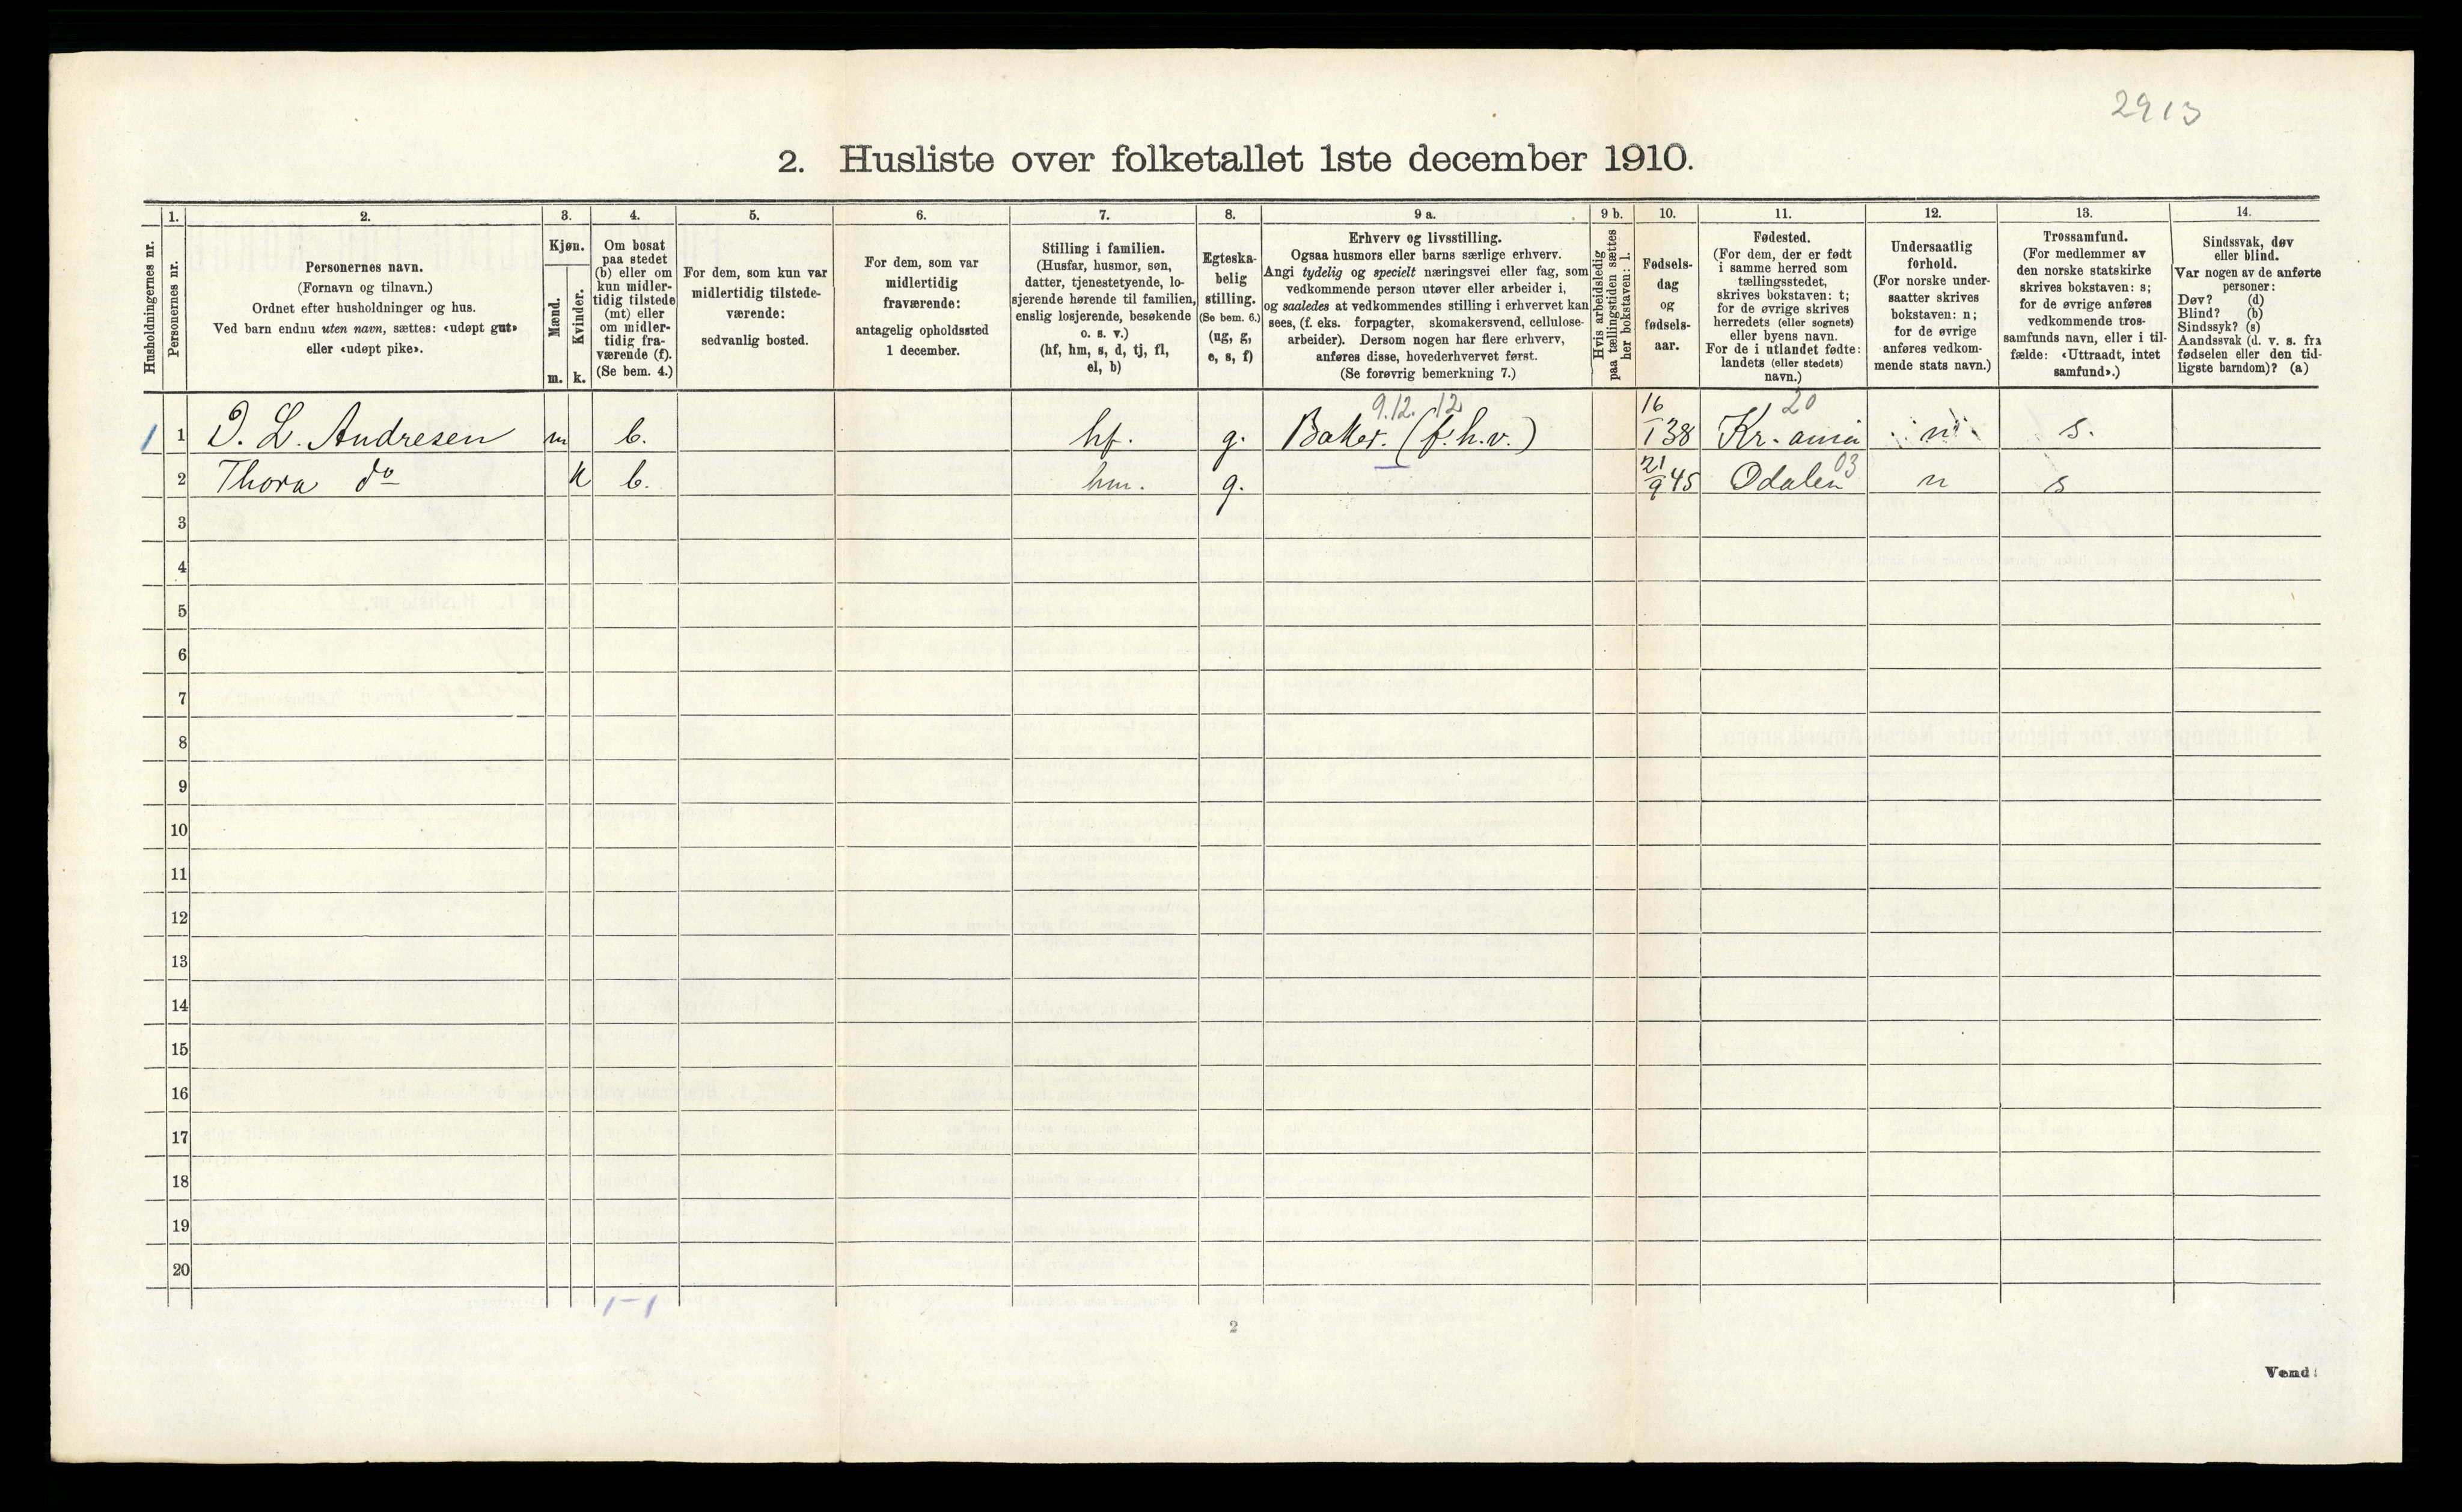 2913
2. Husliste over folketallet 1ste december 1910.
Husholdningernes nr.
1.
Personernes nr.
2.
Personernes navn.
(Fornavn og tilnavn.)
Ordnet efter husholdninger og hus.
Ved barn endnu uten navn, sættes: «udøpt gut»
eller «udøpt pike».
3.
Kjøn.
Mænd.
Kvinder.
m. k.
4.
Om bosat
paa stedet
(b) eller om
kun midler-
tidig tilstede
(mt) eller
om midler-
tidig fra-
værende (f).
(Se bem. 4.)
5.
For dem, som kun var
midlertidig tilstede-
værende:
sedvanlig bosted.
6.
For dem, som var
midlertidig
fraværende:
antagelig opholdssted
1 december.
7.
Stilling i familien.
(Husfar, husmor, søn,
datter, tjenestetyende, lo-
sjerende hørende til familien,
enslig losjerende, besøkende
o. s. v.)
(hf, hm, s, d, tj, fl,
el, b)
8.
Egteska-
belig
stilling.
(Se bem. 6.)
(ug, g,
e, s, f)
9 a.
Erhverv og livsstilling.
Ogsaa husmors eller barns særlige erhverv.
Angi tydelig og specielt næringsvei eller fag, som
vedkommende person utøver eller arbeider i,
og saaledes at vedkommendes stilling i erhvervet kan
sees, (f. eks. forpagter, skomakersvend, cellulose-
arbeider). Dersom nogen har flere erhverv,
anføres disse, hovederhvervet først.
(Se forøvrig bemerkning 7.)
9 b.
Hvis arbeidsledig
paa tællingstiden sættes
her bokstaven: l.
10.
Fødsels-
dag
og
fødsels-
aar.
11.
Fødested.
(For dem, der er født
i samme herred som
tællingsstedet,
skrives bokstaven: t;
for de øvrige skrives
herredets (eller sognets)
eller byens navn.
For de i utlandet fødte:
landets (eller stedets)
navn.)
12.
Undersaatlig
forhold.
(For norske under-
saatter skrives
bokstaven: n;
for de øvrige
anføres vedkom-
mende stats navn.)
13.
Trossamfund.
(For medlemmer av
den norske statskirke
skrives bokstaven: s;
for de øvrige anføres
vedkommende tros-
samfunds navn, eller i til-
fælde: «Uttraadt, intet
samfund».)
14.
Sindssvak, døv
eller blind.
Var nogen av de anførte
personer:
Døv? (d)
Blind? (b)
Sindssyk? (s)
Aandssvak (d. v. s. fra
fødselen eller den tid-
ligste barndom)? (a)
9.12. 12 20
1 1 L. Andresen m b. hf. g. Baker. (f.h.v.) 16/1 38 Kr.ania n s.
2 Thora do k b. hm. g. 21/9 45 Odalen 03 n s
3
4
5
6
7
8
9
10
11
12
13
14
15
16
17
18
19
20
1-1
2
Vend!